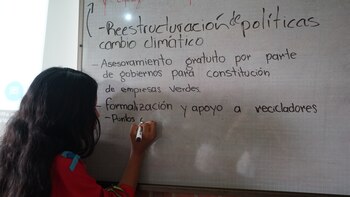 -Reestructuración de políticas
cambio climático
- Asesoramiento gratuito por parte
de gobiernos para constitución
de empresas verdes.
- formalización y apoyo a recicladores
- Puntos